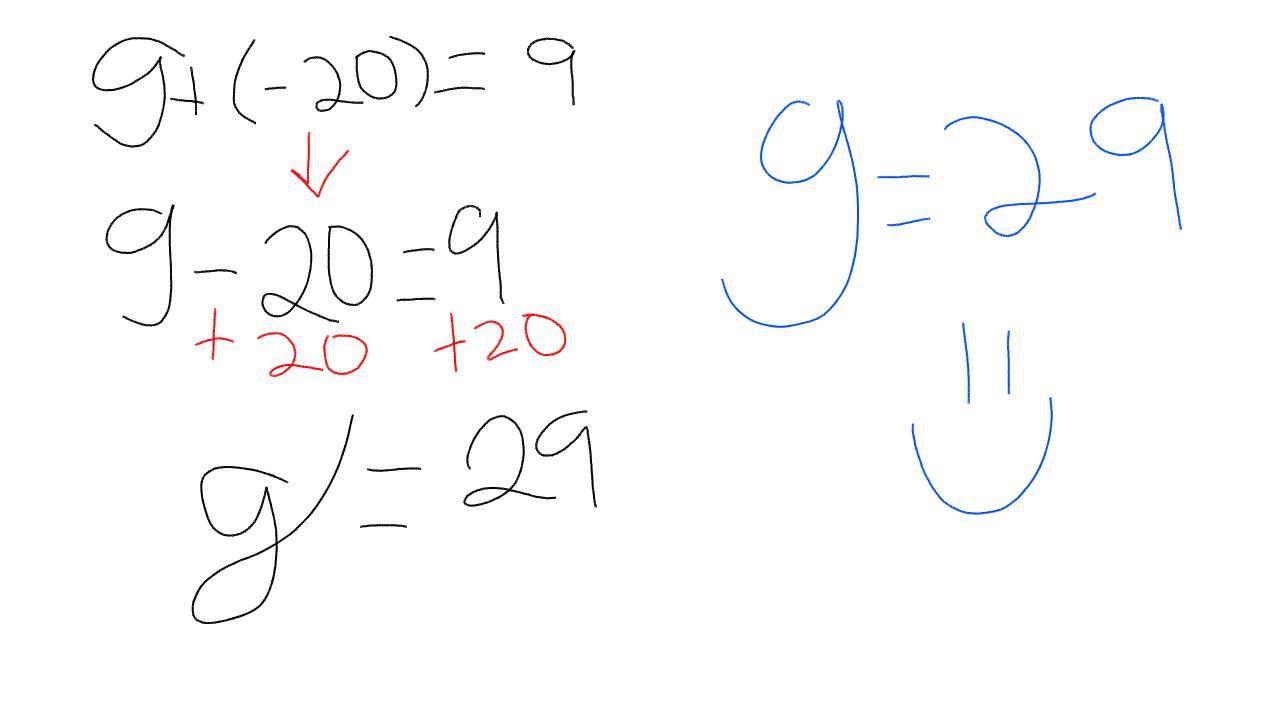 g + (-20) = 9
g - 20 = 9
+ 20 +20
g = 29
g = 29